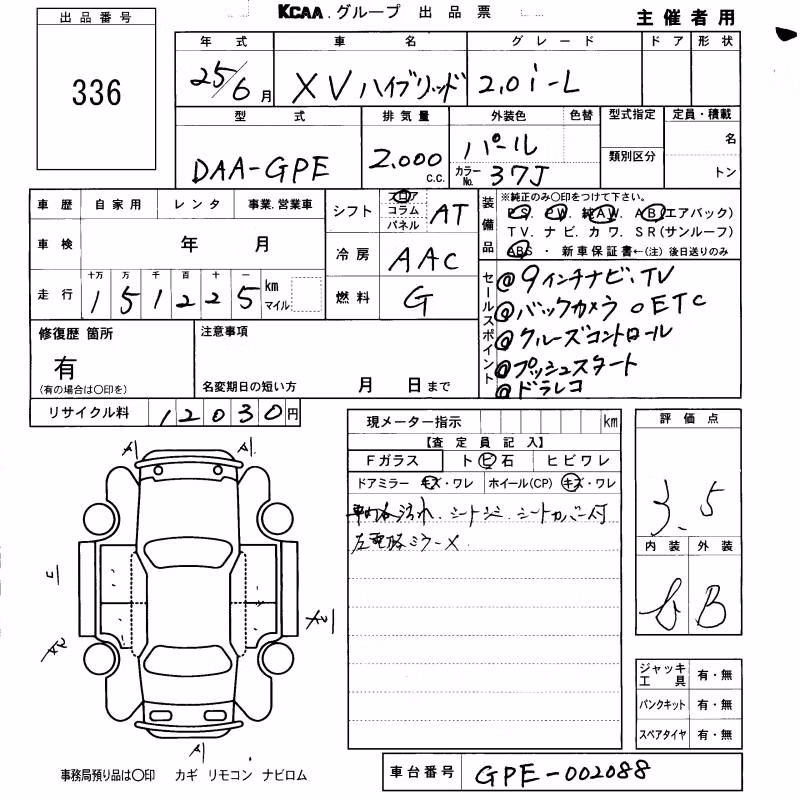 KCAA グループ 出品票
主催者用
出品番号
336
年式 車名 グレード ドア 形状
25/6月 XVハイブリッド 2.0i-L
型式 排気量 外装色 色替 型式指定 定員・積載
DAA-GPE 2.000 c.c. パール 名
カラーNo. 37J 類別区分 トン
車歴 自家用 レンタ 事業.営業車
シフト フロア コラム パネル AT
装備品 ※純正のみ○印をつけて下さい。
PS. PW. 純AW. AB(エアバック)
TV. ナビ. カワ. SR(サンルーフ)
ABS ・ 新車保証書←(注) 後日送りのみ
車検 年 月
冷房 AAC
走行 十万 万 千 百 十 一
151225 km マイル
燃料 G
セールスポイント
@9インチナビ、TV
@バックカメラ ○ETC
@クルーズコントロール
@プッシュスタート
@ドラレコ
修復歴 箇所
有
(有の場合は○印を)
注意事項
名変期日の短い方 月 日まで
リサイクル料 12030円
現メーター指示 km
【査定員記入】
Fガラス ト ビ 石 ヒビワレ
ドアミラー キズ・ワレ ホイール(CP) キズ・ワレ
シートシミ. シートカバー付
評価点
3.5
内装 外装
B
A A
A
ジャッキ工具 有・無
パンクキット 有・無
スペアタイヤ 有・無
事務局預り品は○印 カギ リモコン ナビロム
車台番号 GPE-002088